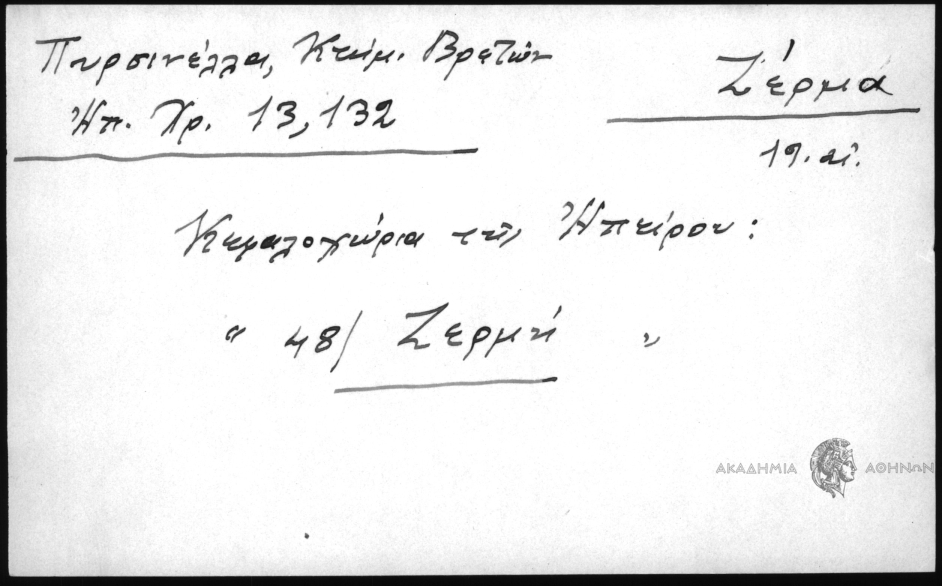 Πυρσινέλλα, Κτιμ. Βρετῶν
Ἠπ. Χρ. 13, 132
Ζέρμα
19. αἰ.
Κεφαλοχώρια τῆς Ἠπείρου:
" 48/ Ζερμή "
ΑΚΑΔΗΜΙΑ ΑΘΗΝΩΝ